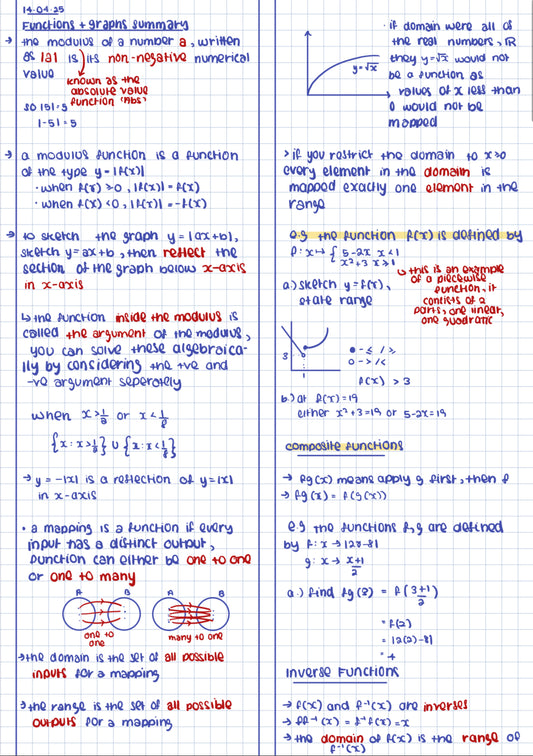 14-04-25
Functions + graphs summary
→ the modulus of a number a, written
as |a| is its non-negative numerical
value
known as the
absolute value
function (Abs)
so |5| = 5
|-5| = 5
→ a modulus function is a function
of the type y = |f(x)|
· when f(x) ≥ 0, |f(x)| = f(x)
· when f(x) < 0, |f(x)| = -f(x)
→ to sketch the graph y = |ax+b|,
sketch y = ax + b, then reflect the
section of the graph below x-axis
in x-axis
↳ the function inside the modulus is
called the argument of the modulus,
you can solve these algebraica-
lly by considering the +ve and
-ve argument seperately
when or
∪
→ y = -|x| is a reflection of y = |x|
in x-axis
• a mapping is a function if every
input has a distinct output,
function can either be one to one
or one to many
A B A B
one to
one
many to one
→ the domain is the set of all possible
inputs for a mapping
→ the range is the set of all possible
outputs for a mapping
y=√x
· if domain were all of
the real numbers, ℝ
they y=√x would not
be a function as
values of x less than
0 would not be
mapped
> if you restrict the domain to x≥0
every element in the domain is
mapped exactly one element in the
range
e.g the function f(x) is defined by
f: x → { 5-2x x<1
x²+3 x≥1
↳ this is an example
of a piecewise
function, it
consists of 2
parts, one linear,
one quadratic
a.) sketch y = f(x),
state range
3
1
● - ≤ / ≥
○ - > / <
f(x) > 3
b.) at f(x) = 19
either x²+3=19 or 5-2x=19
composite functions
→ fg(x) means apply g first, then f
→ fg(x) = f(g(x))
e.g the functions f, g are defined
by f: x → |2x-8|
g: x → x+1/2
a.) find fg(3) = f(3+1/2)
= f(2)
= |2(2)-8|
= 4
Inverse Functions
→ f(x) and f⁻¹(x) are inverses
→ ff⁻¹(x) = f⁻¹f(x) = x
→ the domain of f(x) is the range of
f⁻¹(x)